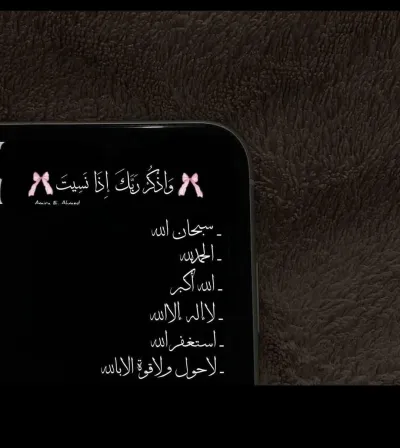 وَاذْكُر رَبَّكَ إِذَا نَسِيتَ
Amira B. Ahmed
ـ سبحان الله
ـ الحمدلله
ـ الله أكبر
ـ لا إله إلا الله
ـ استغفر الله
ـ لاحول ولاقوة الا بالله